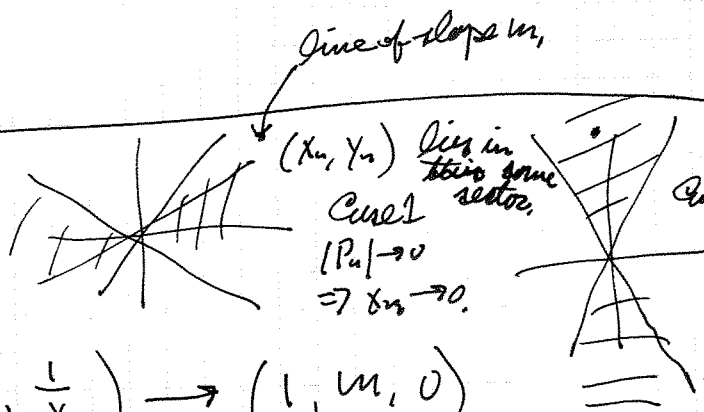 line of slope m,
(xₙ, yₙ) lies in
some
sector.
Case 1
|Pₙ| → 0
⇒ xₙ → 0.
, 1/x ) → (1, m, 0)